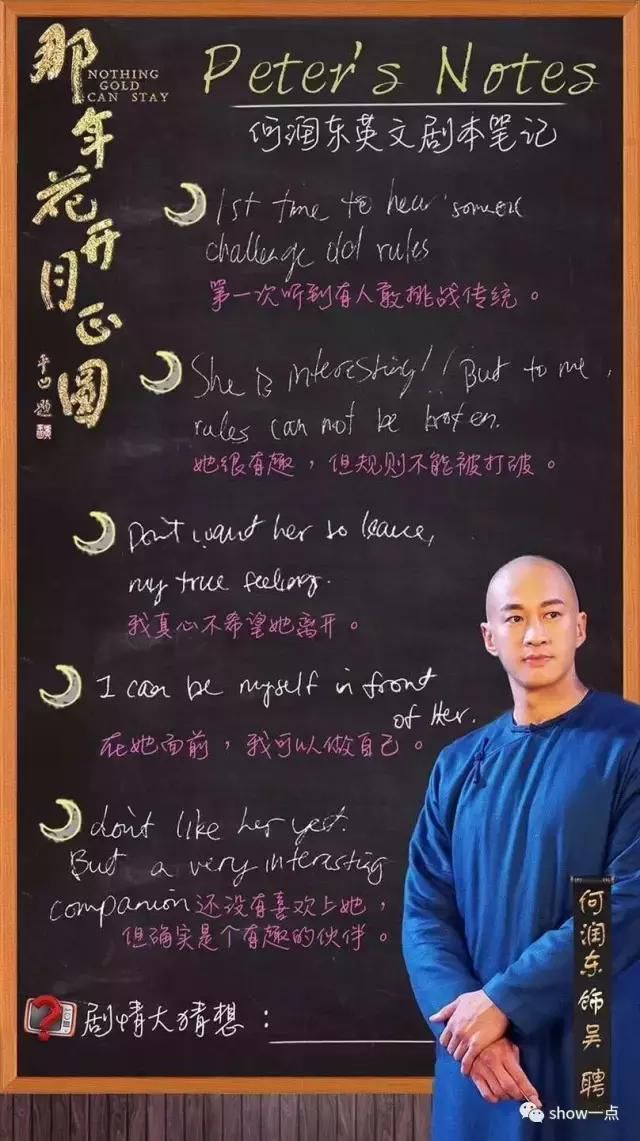 那年花开月正圆
NOTHING
GOLD
CAN STAY
平凹题
Peter's Notes
何润东英文剧本笔记
1st time to hear someone
challenge old rules
第一次听到有人敢挑战传统。
She is interesting!! But to me,
rules can not be broken.
她很有趣，但规则不能被打破。
Don't want her so leave,
my true feeling.
我真心不希望她离开。
I can be myself in front
of Her.
在她面前，我可以做自己。
don't like her yet.
But a very interesting
companion 还没有喜欢上她，
但确实是个有趣的伙伴。
剧情大猜想：
何润东 饰 吴聘
show一点